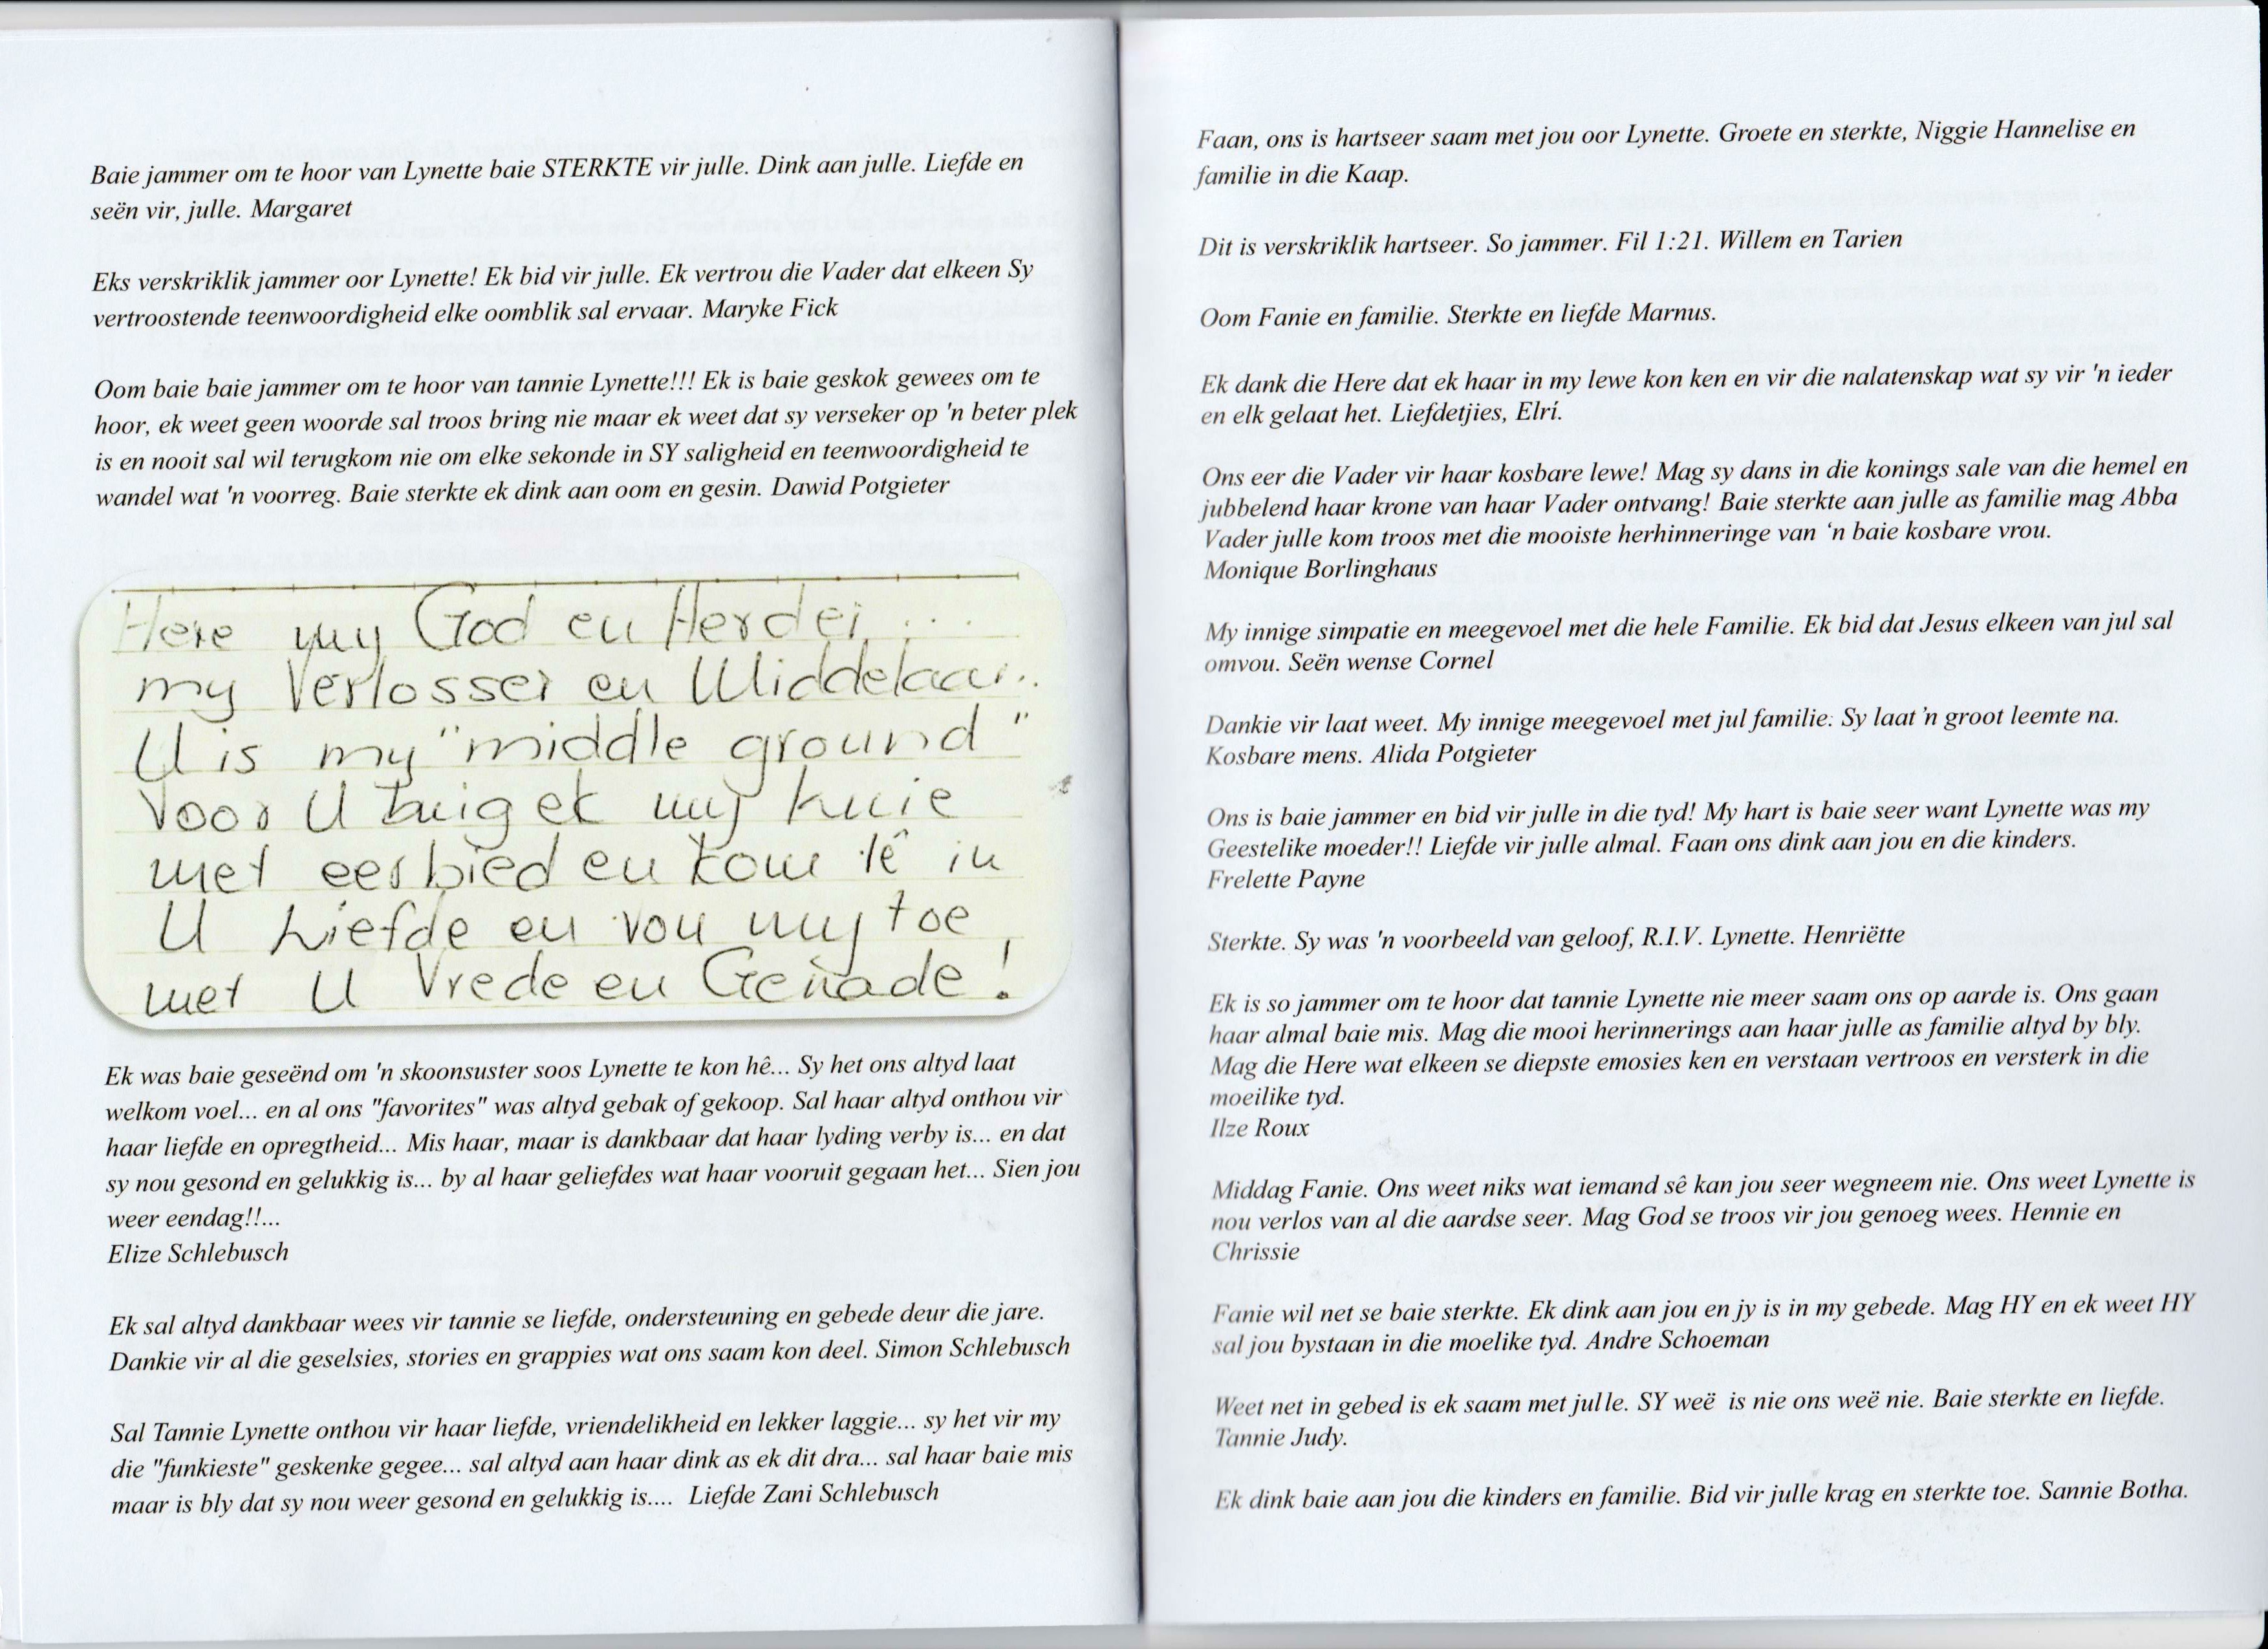 Baie jammer om te hoor van Lynette baie STERKTE vir julle. Dink aan julle. Liefde en
seën vir, julle. Margaret
Eks verskriklik jammer oor Lynette! Ek bid vir julle. Ek vertrou die Vader dat elkeen Sy
vertroostende teenwoordigheid elke oomblik sal ervaar. Maryke Fick
Oom baie baie jammer om te hoor van tannie Lynette!!! Ek is baie geskok gewees om te
hoor, ek weet geen woorde sal troos bring nie maar ek weet dat sy verseker op 'n beter plek
is en nooit sal wil terugkom nie om elke sekonde in SY saligheid en teenwoordigheid te
wandel wat 'n voorreg. Baie sterkte ek dink aan oom en gesin. Dawid Potgieter
Here my God en Herder...
my Verlosser en Middelaar..
U is my "middle ground"
Voor U buig ek my knie
met eerbied en kom lê in
U Liefde en vou my toe
met U Vrede en Genade!
Ek was baie geseënd om 'n skoonsuster soos Lynette te kon hê... Sy het ons altyd laat
welkom voel... en al ons "favorites" was altyd gebak of gekoop. Sal haar altyd onthou vir
haar liefde en opregtheid... Mis haar, maar is dankbaar dat haar lyding verby is... en dat
sy nou gesond en gelukkig is... by al haar geliefdes wat haar vooruit gegaan het... Sien jou
weer eendag!!...
Elize Schlebusch
Ek sal altyd dankbaar wees vir tannie se liefde, ondersteuning en gebede deur die jare.
Dankie vir al die geselsies, stories en grappies wat ons saam kon deel. Simon Schlebusch
Sal Tannie Lynette onthou vir haar liefde, vriendelikheid en lekker laggie... sy het vir my
die "funkieste" geskenke gegee... sal altyd aan haar dink as ek dit dra... sal haar baie mis
maar is bly dat sy nou weer gesond en gelukkig is.... Liefde Zani Schlebusch
Faan, ons is hartseer saam met jou oor Lynette. Groete en sterkte, Niggie Hannelise en
familie in die Kaap.
Dit is verskriklik hartseer. So jammer. Fil 1:21. Willem en Tarien
Oom Fanie en familie. Sterkte en liefde Marnus.
Ek dank die Here dat ek haar in my lewe kon ken en vir die nalatenskap wat sy vir 'n ieder
en elk gelaat het. Liefdetjies, Elrí.
Ons eer die Vader vir haar kosbare lewe! Mag sy dans in die konings sale van die hemel en
jubbelend haar krone van haar Vader ontvang! Baie sterkte aan julle as familie mag Abba
Vader julle kom troos met die mooiste herhinneringe van ‘n baie kosbare vrou.
Monique Borlinghaus
My innige simpatie en meegevoel met die hele Familie. Ek bid dat Jesus elkeen van jul sal
omvou. Seën wense Cornel
Dankie vir laat weet. My innige meegevoel met jul familie. Sy laat 'n groot leemte na.
Kosbare mens. Alida Potgieter
Ons is baie jammer en bid vir julle in die tyd! My hart is baie seer want Lynette was my
Geestelike moeder!! Liefde vir julle almal. Faan ons dink aan jou en die kinders.
Frelette Payne
Sterkte. Sy was 'n voorbeeld van geloof, R.I.V. Lynette. Henriëtte
Ek is so jammer om te hoor dat tannie Lynette nie meer saam ons op aarde is. Ons gaan
haar almal baie mis. Mag die mooi herinnerings aan haar julle as familie altyd by bly.
Mag die Here wat elkeen se diepste emosies ken en verstaan vertroos en versterk in die
moeilike tyd.
Ilze Roux
Middag Fanie. Ons weet niks wat iemand sê kan jou seer wegneem nie. Ons weet Lynette is
nou verlos van al die aardse seer. Mag God se troos vir jou genoeg wees. Hennie en
Chrissie
Fanie wil net se baie sterkte. Ek dink aan jou en jy is in my gebede. Mag HY en ek weet HY
sal jou bystaan in die moelike tyd. Andre Schoeman
Weet net in gebed is ek saam met julle. SY weë is nie ons weë nie. Baie sterkte en liefde.
Tannie Judy.
Ek dink baie aan jou die kinders en familie. Bid vir julle krag en sterkte toe. Sannie Botha.